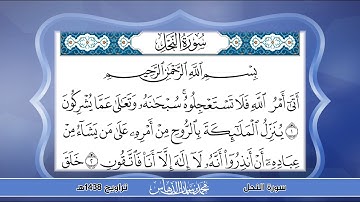 سُورَةُ النَّحْلِ
بِسْمِ اللَّهِ الرَّحْمَٰنِ الرَّحِيمِ
أَتَىٰ أَمْرُ اللَّهِ فَلَا تَسْتَعْجِلُوهُ سُبْحَانَهُ وَتَعَالَىٰ عَمَّا يُشْرِكُونَ
١ يُنَزِّلُ الْمَلَائِكَةَ بِالرُّوحِ مِنْ أَمْرِهِ عَلَىٰ مَن يَشَاءُ مِنْ
عِبَادِهِ أَنْ أَنذِرُوا أَنَّهُ لَا إِلَٰهَ إِلَّا أَنَا فَاتَّقُونِ ٢ خَلَقَ
سورة النحل
تراويح 1438هـ